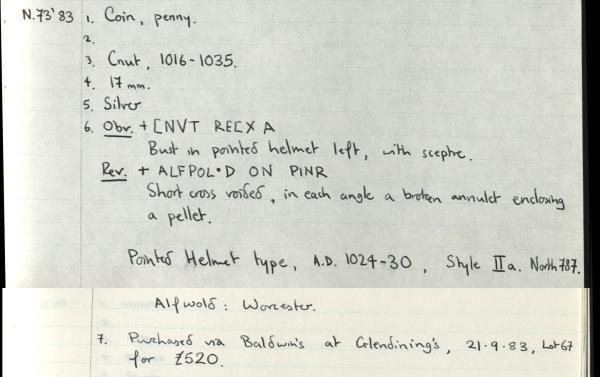 N.73'83 1. Coin, penny.
2.
3. Cnut, 1016-1035.
4. 17 mm.
5. Silver
6. Obv. + CNVT RECX A
Bust in pointed helmet left, with sceptre.
Rev. + ALFPOL•D ON PINR
Short cross voided, in each angle a broken annulet enclosing
a pellet.
Pointed Helmet type, A.D. 1024-30, Style IIa. North 787.
Alfwold: Worcester.
7. Purchased via Baldwin's at Glendining's, 21.9.83, Lot 67
for £520.